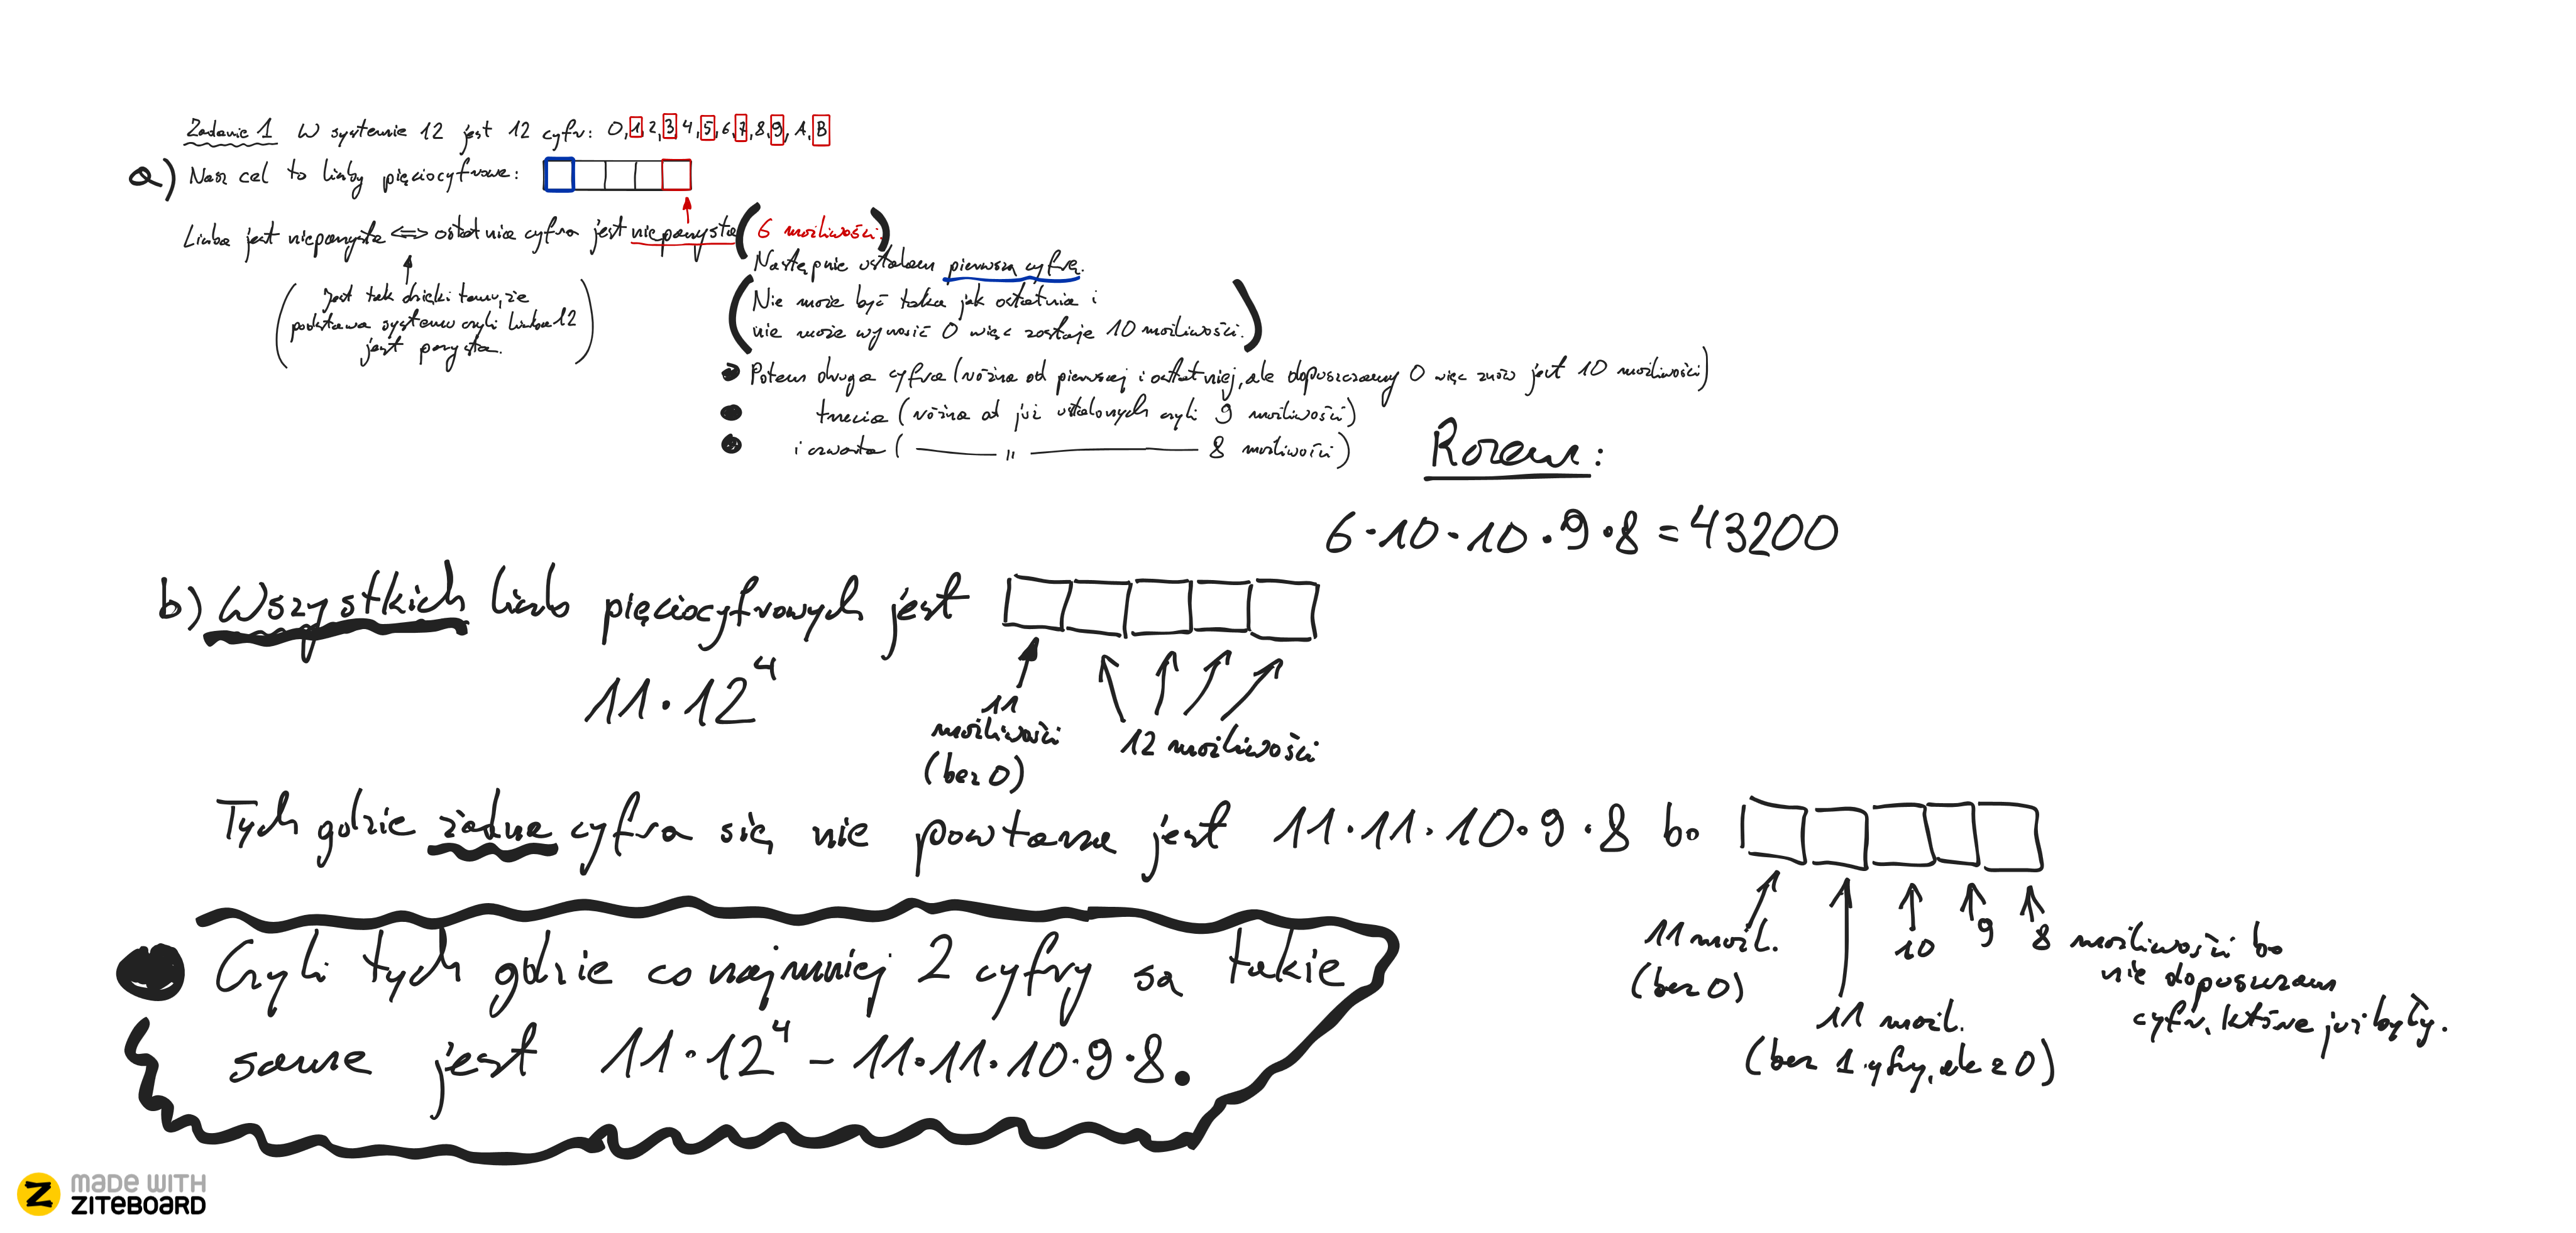 Zadanie 1 W systemie 12 jest 12 cyfr: 0,1,2,3,4,5,6,7,8,9,A,B
a) Nasz cel to liczby pięciocyfrowe:
Liczba jest nieparzysta <=> ostatnia cyfra jest nieparzysta (6 możliwości)
(Jest tak dzięki temu, że
podstawa systemu czyli liczba 12
jest parzysta.)
Następnie ustalam pierwszą cyfrę.
(Nie może być taka jak ostatnia i
nie może wynosić 0 więc zostaje 10 możliwości.)
● Potem druga cyfra (różna od pierwszej i ostatniej, ale dopuszczamy 0 więc znów jest 10 możliwości)
● trzecia (różna od już ustalonych czyli 9 możliwości)
● i czwarta ( —— " —— 8 możliwości)
Razem:
6·10·10·9·8 = 43200
b) Wszystkich liczb pięciocyfrowych jest
11·12⁴
11
możliwości
(bez 0)
12 możliwości
Tych gdzie żadna cyfra się nie powtarza jest 11·11·10·9·8 bo
11 możl.
(bez 0)
11 możl.
(bez 1 cyfry, ale z 0)
10
9
8 możliwości bo
nie dopuszczam
cyfr, które już były.
● Czyli tych gdzie co najmniej 2 cyfry są takie
same jest 11·12⁴ - 11·11·10·9·8.
MADE WITH
ZITEBOARD